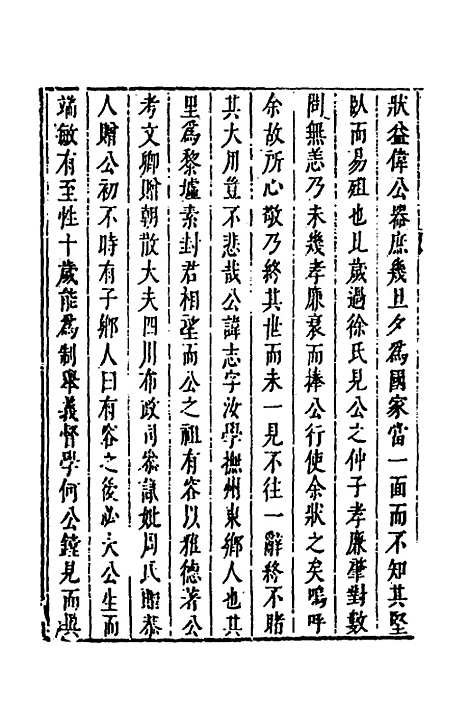 狀益偉公器庶幾旦夕爲國家當一面而不知其堅
臥而易祖也比歲過徐氏見公之仲子孝廉肇對數
問無恙乃未幾孝廉衰而捧公行使余狀之矣嗚呼
余故所心敬乃終其世而未一見不往一辭終不睹
其大用豈不悲哉公諱志字汝學撫州東鄉人也其
里爲黎墟素封君相望而公之祖有容以雅德著公
考文卿贈朝散大夫四川布政司叅議妣周氏贈恭
人贈公初不時有子鄉人曰有容之後必大公生而
端敏有至性十歲能爲制舉義督學何公鏜見而異